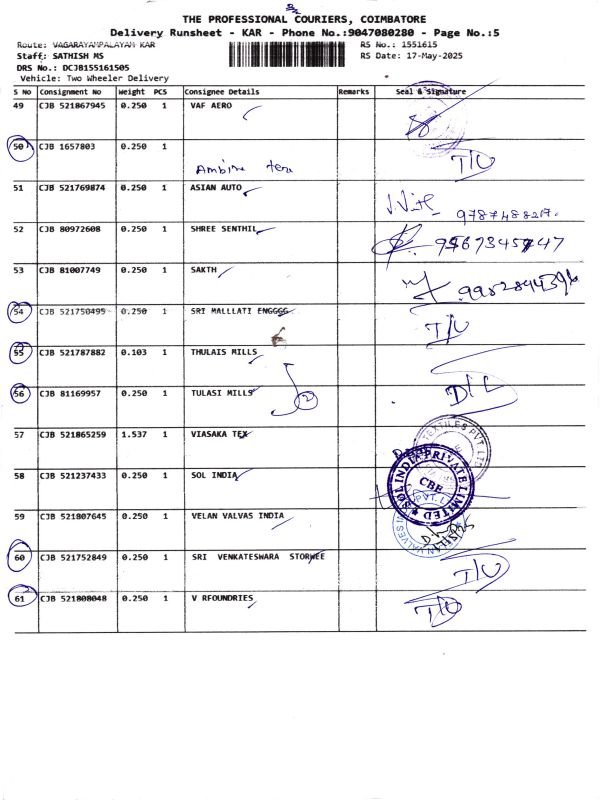 THE PROFESSIONAL COURIERS, COIMBATORE
Delivery Runsheet - KAR - Phone No.:9047080280 - Page No.:5
Route: VAGARAYAMPALAYAM KAR
RS No.: 1551615
Staff: SATHISH MS
RS Date: 17-May-2025
DRS No.: DCJB155161505
Vehicle: Two Wheeler Delivery
S No Consignment No Weight PCS Consignee Details Remarks Seal & Signature
49 CJB 521867945 0.250 1 VAF AERO
50 CJB 1657803 0.250 1 T/U
51 CJB 521769874 0.250 1 ASIAN AUTO
52 CJB 80972608 0.250 1 SHREE SENTHIL
53 CJB 81007749 0.250 1 SAKTH
54 CJB 521750495 0.250 1 SRI MALLLATI ENGGGG T/U
55 CJB 521787882 0.103 1 THULAIS MILLS
56 CJB 81169957 0.250 1 TULASI MILLS 2 D/L
57 CJB 521865259 1.537 1 VIASAKA TEX TEXTILES PVT LTD
58 CJB 521237433 0.250 1 SOL INDIA SOL INDIA PRIVATE LIMITED CBE
59 CJB 521807645 0.250 1 VELAN VALVAS INDIA
60 CJB 521752849 0.250 1 SRI VENKATESWARA STORWEE T/U
61 CJB 521808048 0.250 1 V RFOUNDRIES T/U